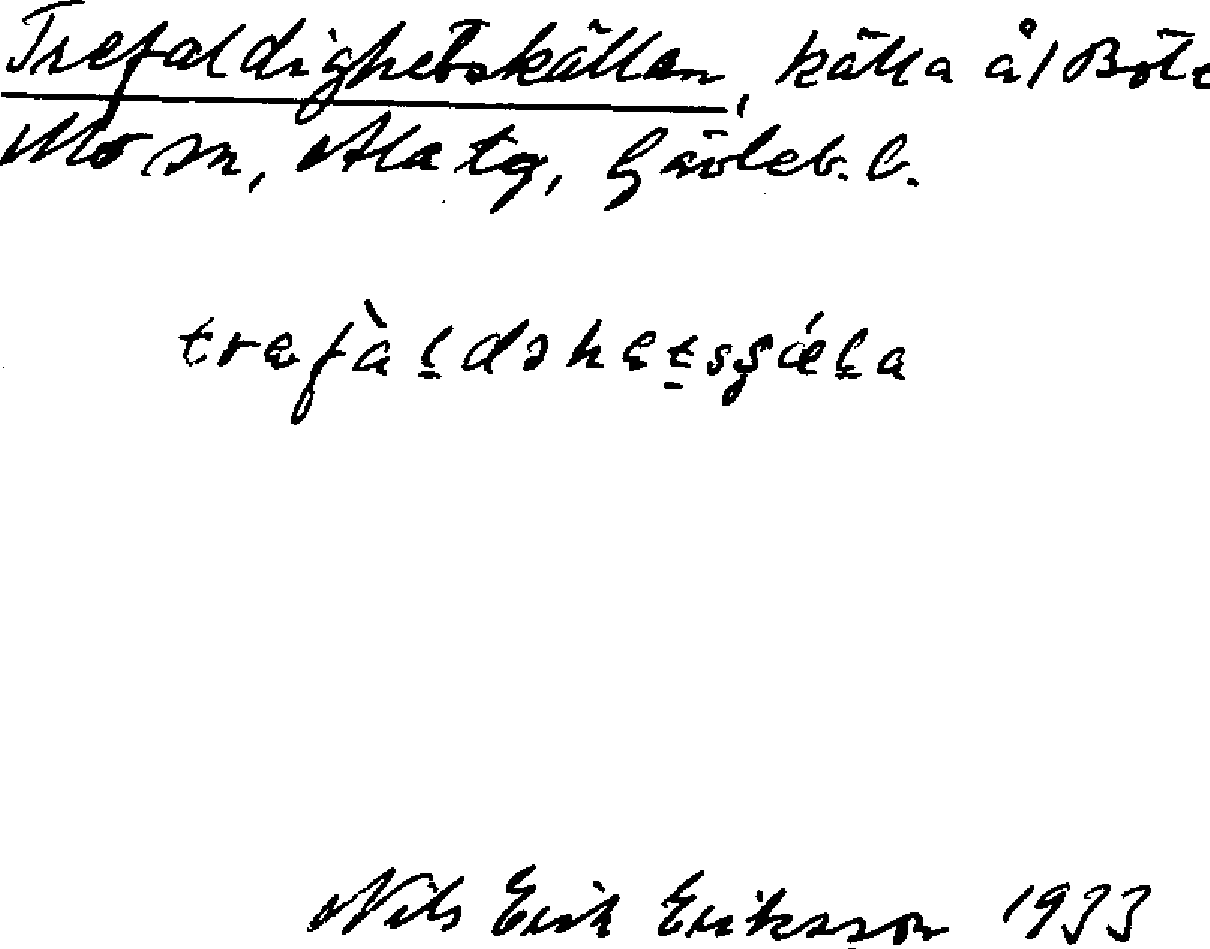 Trefaldighetskällan, källa å Böle
Mo sn, Ala tg, Gävleb. l.
trefàldshetsçǽla
Nils Erik Eriksson 1933